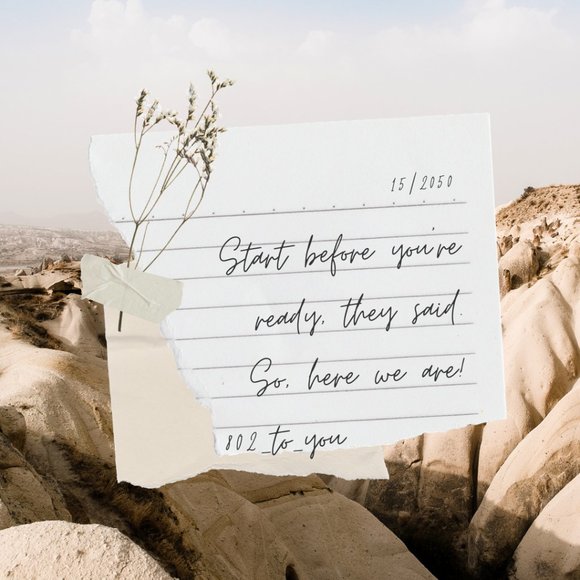 15/2050
Start before you're
ready, they said.
So, here we are!
802_to_you